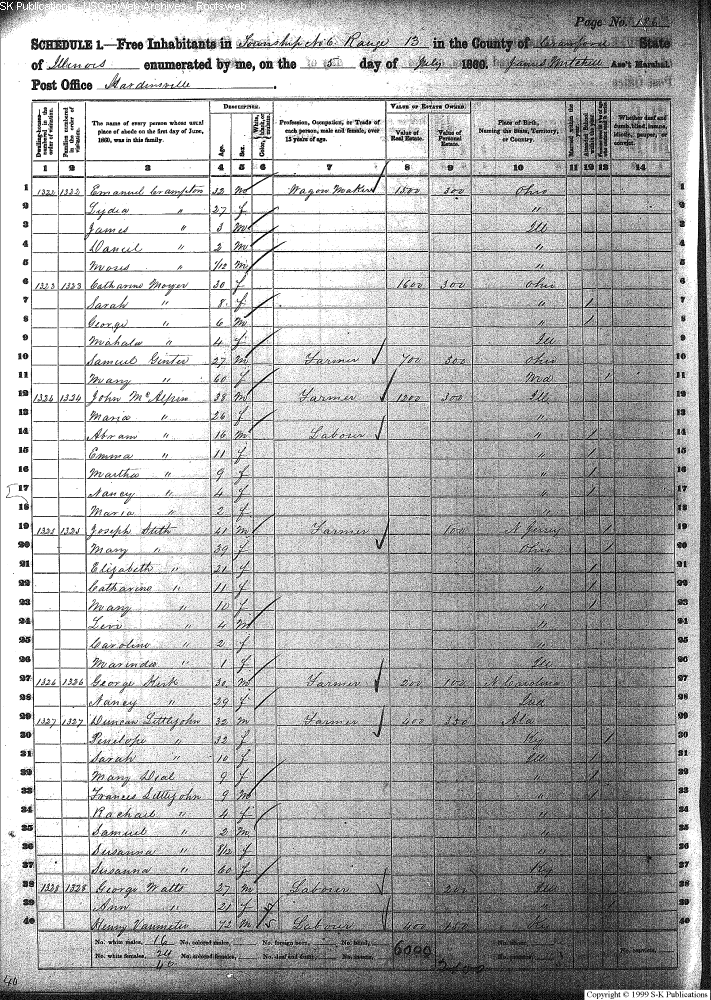 SK Publications - USGenWeb Archives - Rootsweb
Page No. 186
SCHEDULE 1.—Free Inhabitants in Township No 6 Range 13 in the County of Crawford State
of Illinois enumerated by me, on the 5 day of July 1860. James Mitchell Ass't Marshal.
Post Office Hardinsville
Dwelling-houses—numbered in the order of visitation.
Families numbered in the order of visitation.
The name of every person whose usual place of abode on the first day of June, 1860, was in this family.
DESCRIPTION.
Age.
Sex.
Color, White, black, or mulatto.
Profession, Occupation, or Trade of each person, male and female, over 15 years of age.
VALUE OF ESTATE OWNED.
Value of Real Estate.
Value of Personal Estate.
Place of Birth, Naming the State, Territory, or Country.
Married within the year.
Whether deaf and dumb, blind, insane, idiotic, pauper, or convict.
1 2 3 4 5 6 7 8 9 10 11 12 13 14
1 1322 1322 Emanuel Crampton 32 m Wagon Maker 1500 300 Ohio 1
2 Lydia " 27 f " 2
3 James " 3 m Ill 3
4 Daniel " 2 m " 4
5 Moses " /12 m " 5
6 1323 1323 Catharine Moyer 30 f 1600 300 Ohio 6
7 Sarah " 8 f " 1 7
8 George " 6 m " 1 8
9 Mahala " 4 f Ill 9
10 Samuel Ginter 27 m Farmer 700 300 Ohio 10
11 Mary " 60 f 1 11
12 1324 1324 John McAlpin 38 m Farmer 1200 300 Ill 12
13 Maria " 26 f " 13
14 Abram " 16 m Labourer " 1 14
15 Emma " 11 f " 1 15
16 Martha " 9 f " 1 16
17 Nancy " 4 f " 1 17
18 Maria " 2 f " 18
19 1325 1325 Joseph Stith 41 m Farmer 100 N Jersey 1 19
20 Mary " 39 f Ohio 1 20
21 Elizabeth " 21 f " 1 21
22 Catharine " 11 f " 1 22
23 Mary " 10 f " 1 23
24 Levi " 4 m " 24
25 Caroline " 2 f " 25
26 Marinda " 1 f Ill 26
27 1326 1326 George Kirk 30 m Farmer 200 100 N Carolina 27
28 Nancy " 29 f Ind 28
29 1327 1327 Duncan Littlejohn 32 m Farmer 400 350 Ala 29
30 Penelope " 32 f Ky 1 30
31 Sarah " 10 f Ill 1 31
32 Mary Deal 9 f " 1 32
33 Frances Littlejohn 9 m " 1 33
34 Rachail " 4 f " 34
35 Samuel " 2 m " 35
36 Susanna " 8/12 f " 36
37 Susanna " 60 f Ky 37
38 1328 1328 George Watts 27 m Labourer 200 Ill 38
39 Ann " 21 f " 39
40 Henry Vanmeter 72 m Labourer 400 150 Ky 40
No. white males, 16 No. colored males, No. foreign born, No. blind,
No. white females, 24 No. colored females, No. deaf and dumb, No. insane,
40
6000
Copyright © 1999 S-K Publications